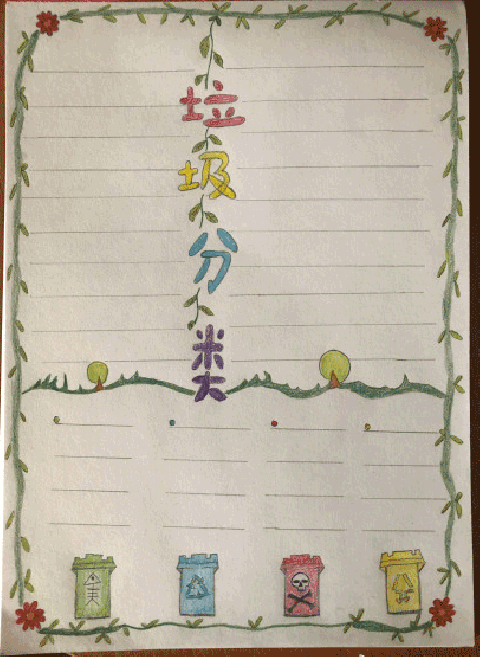 垃
圾
分
类